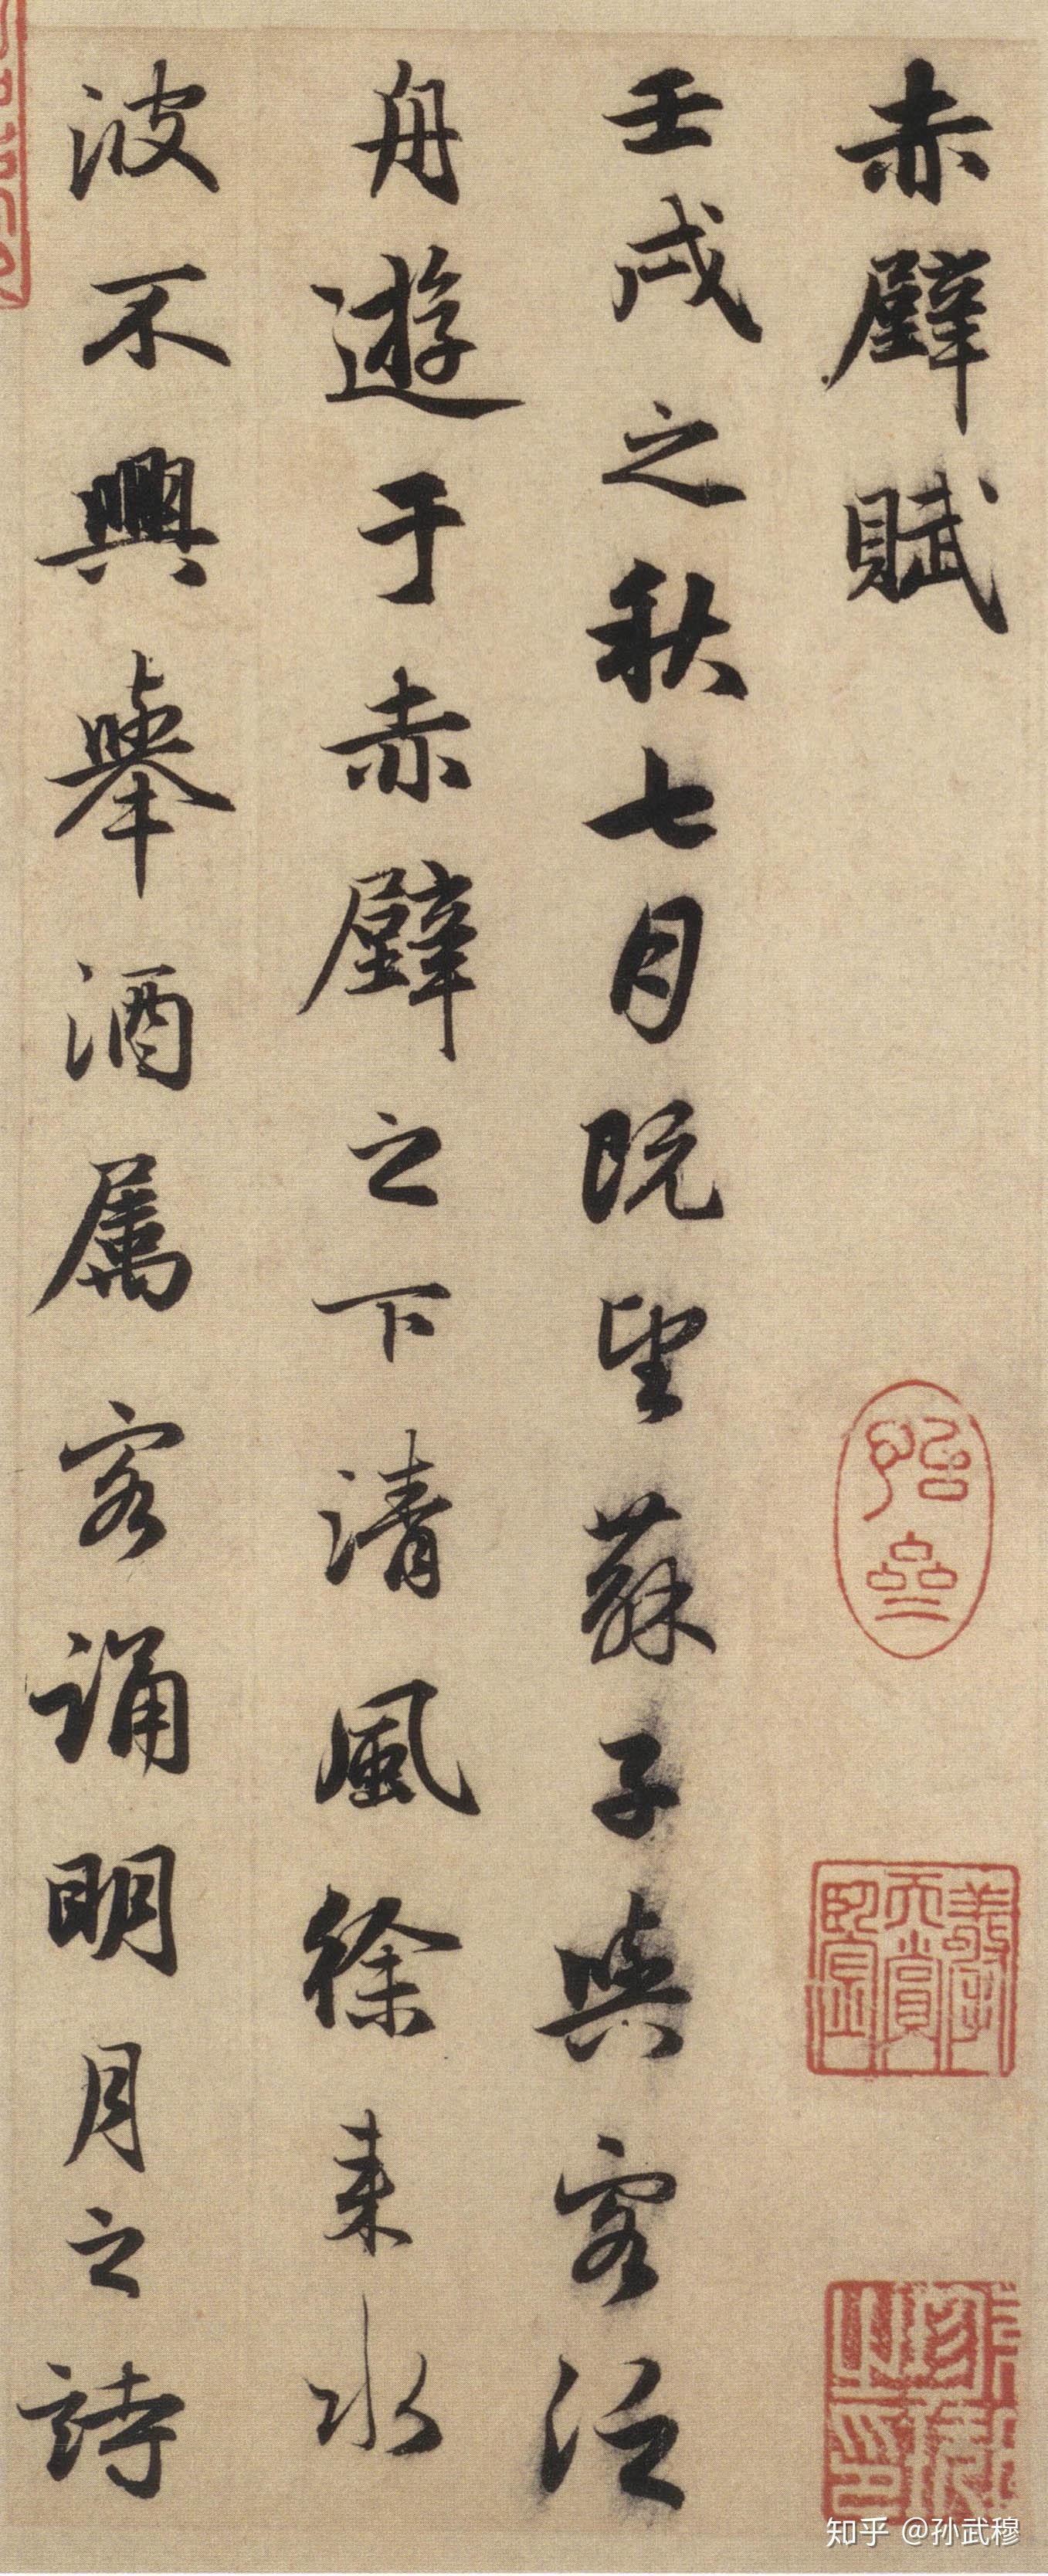 赤壁賦
壬戌之秋七月既望蘇子與客泛
舟遊于赤壁之下清風徐来水
波不興舉酒属客誦明月之詩
知乎 @孙武穆